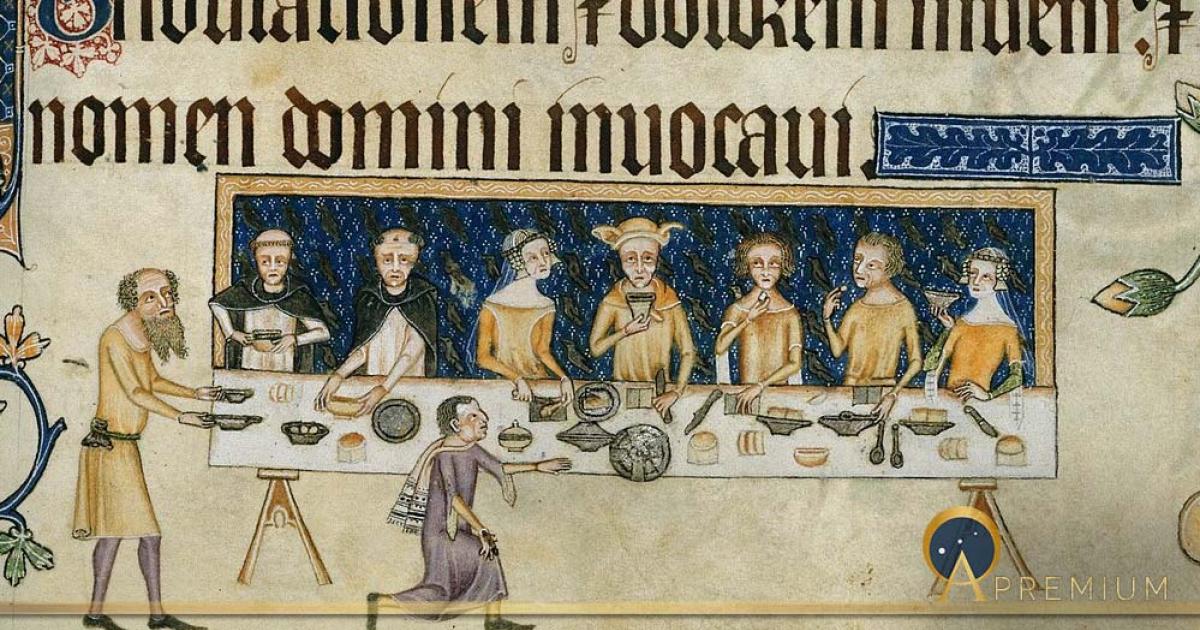 Tribulationem ⁊ dolorem inueni: ⁊
nomen domini inuocaui.
PREMIUM